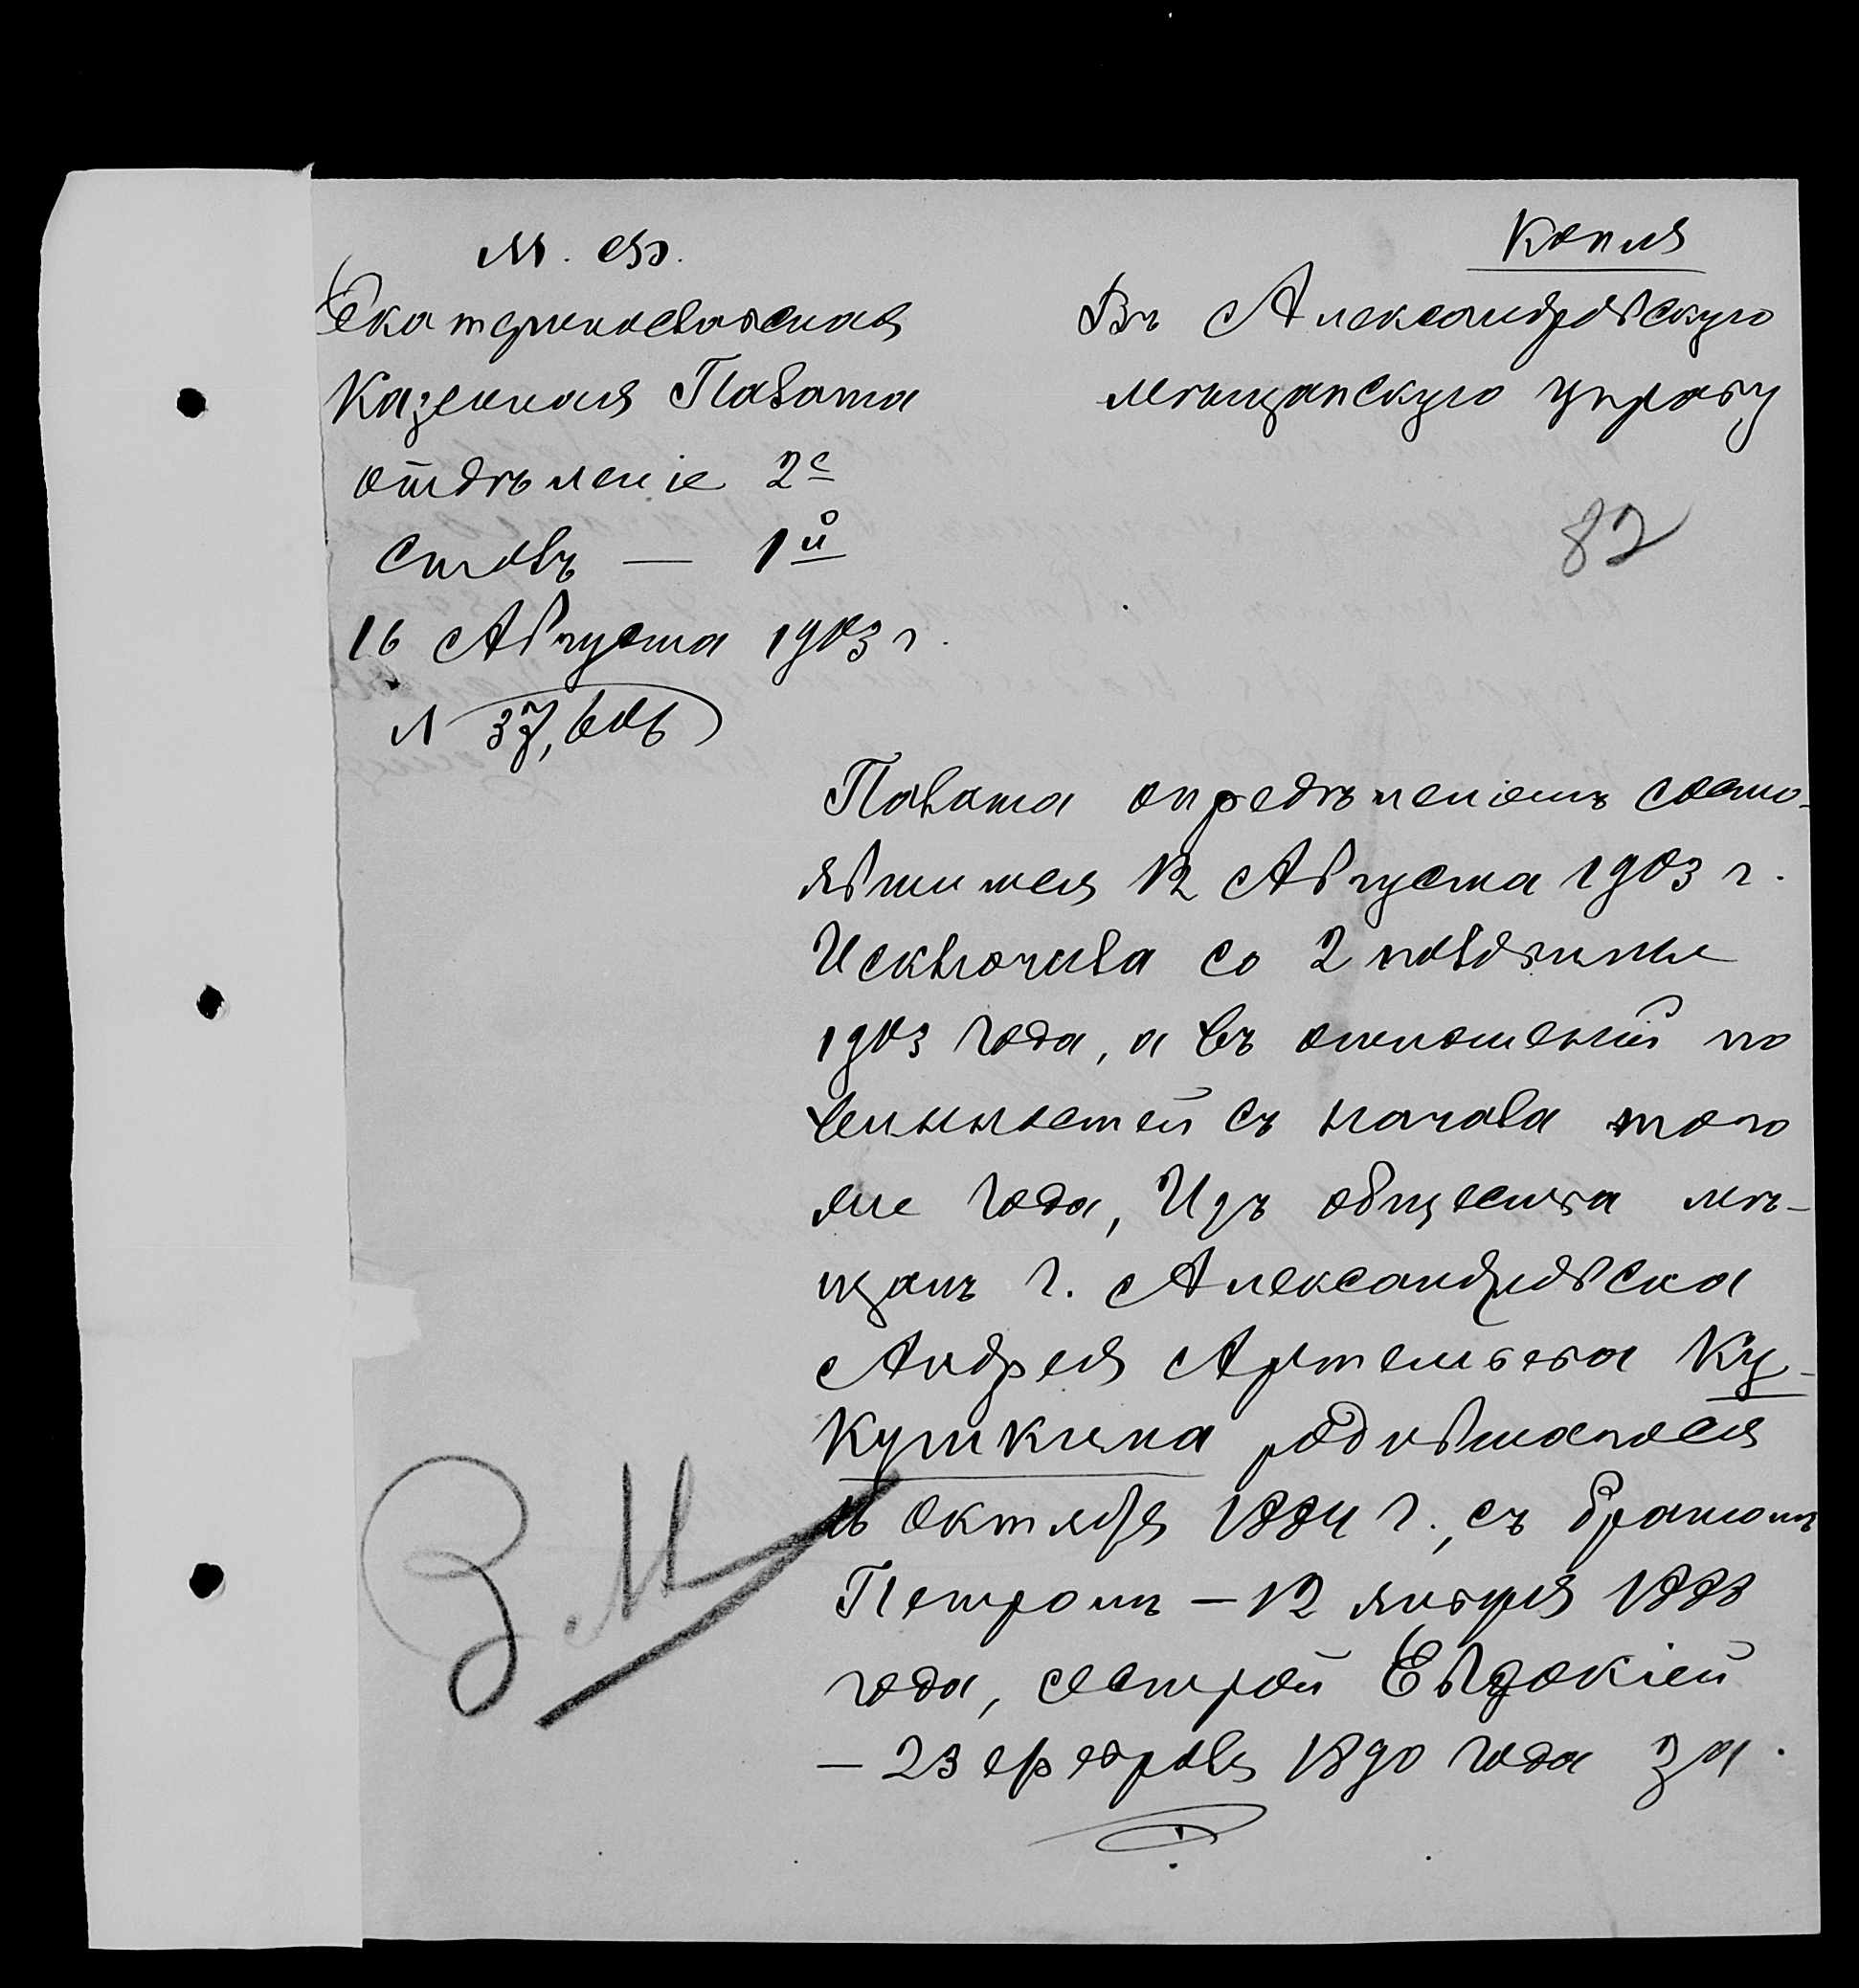 Копия
М. Ф.
Екатеринославская
Казенная Палата
отдѣленіе 2е
Столъ — 1й
16 Августа 1903 г.
№ 37,606
Въ Александровскую
мѣщанскую управу
82
Палата опредѣленіемъ состо-
явшимся 12 Августа 1903 г.
Исключила со 2 половины
1903 года, а въ отношеніи по
винностей съ начала того
же года, Изъ общества мѣ-
щанъ г. Александровска
Андрея Артемьева Ку-
кушкина родившагося
16 Октября 1884 г., съ братомъ
Петромъ — 12 января 1888
года, сестрой Евдокіей
— 23 февраля 1890 года за